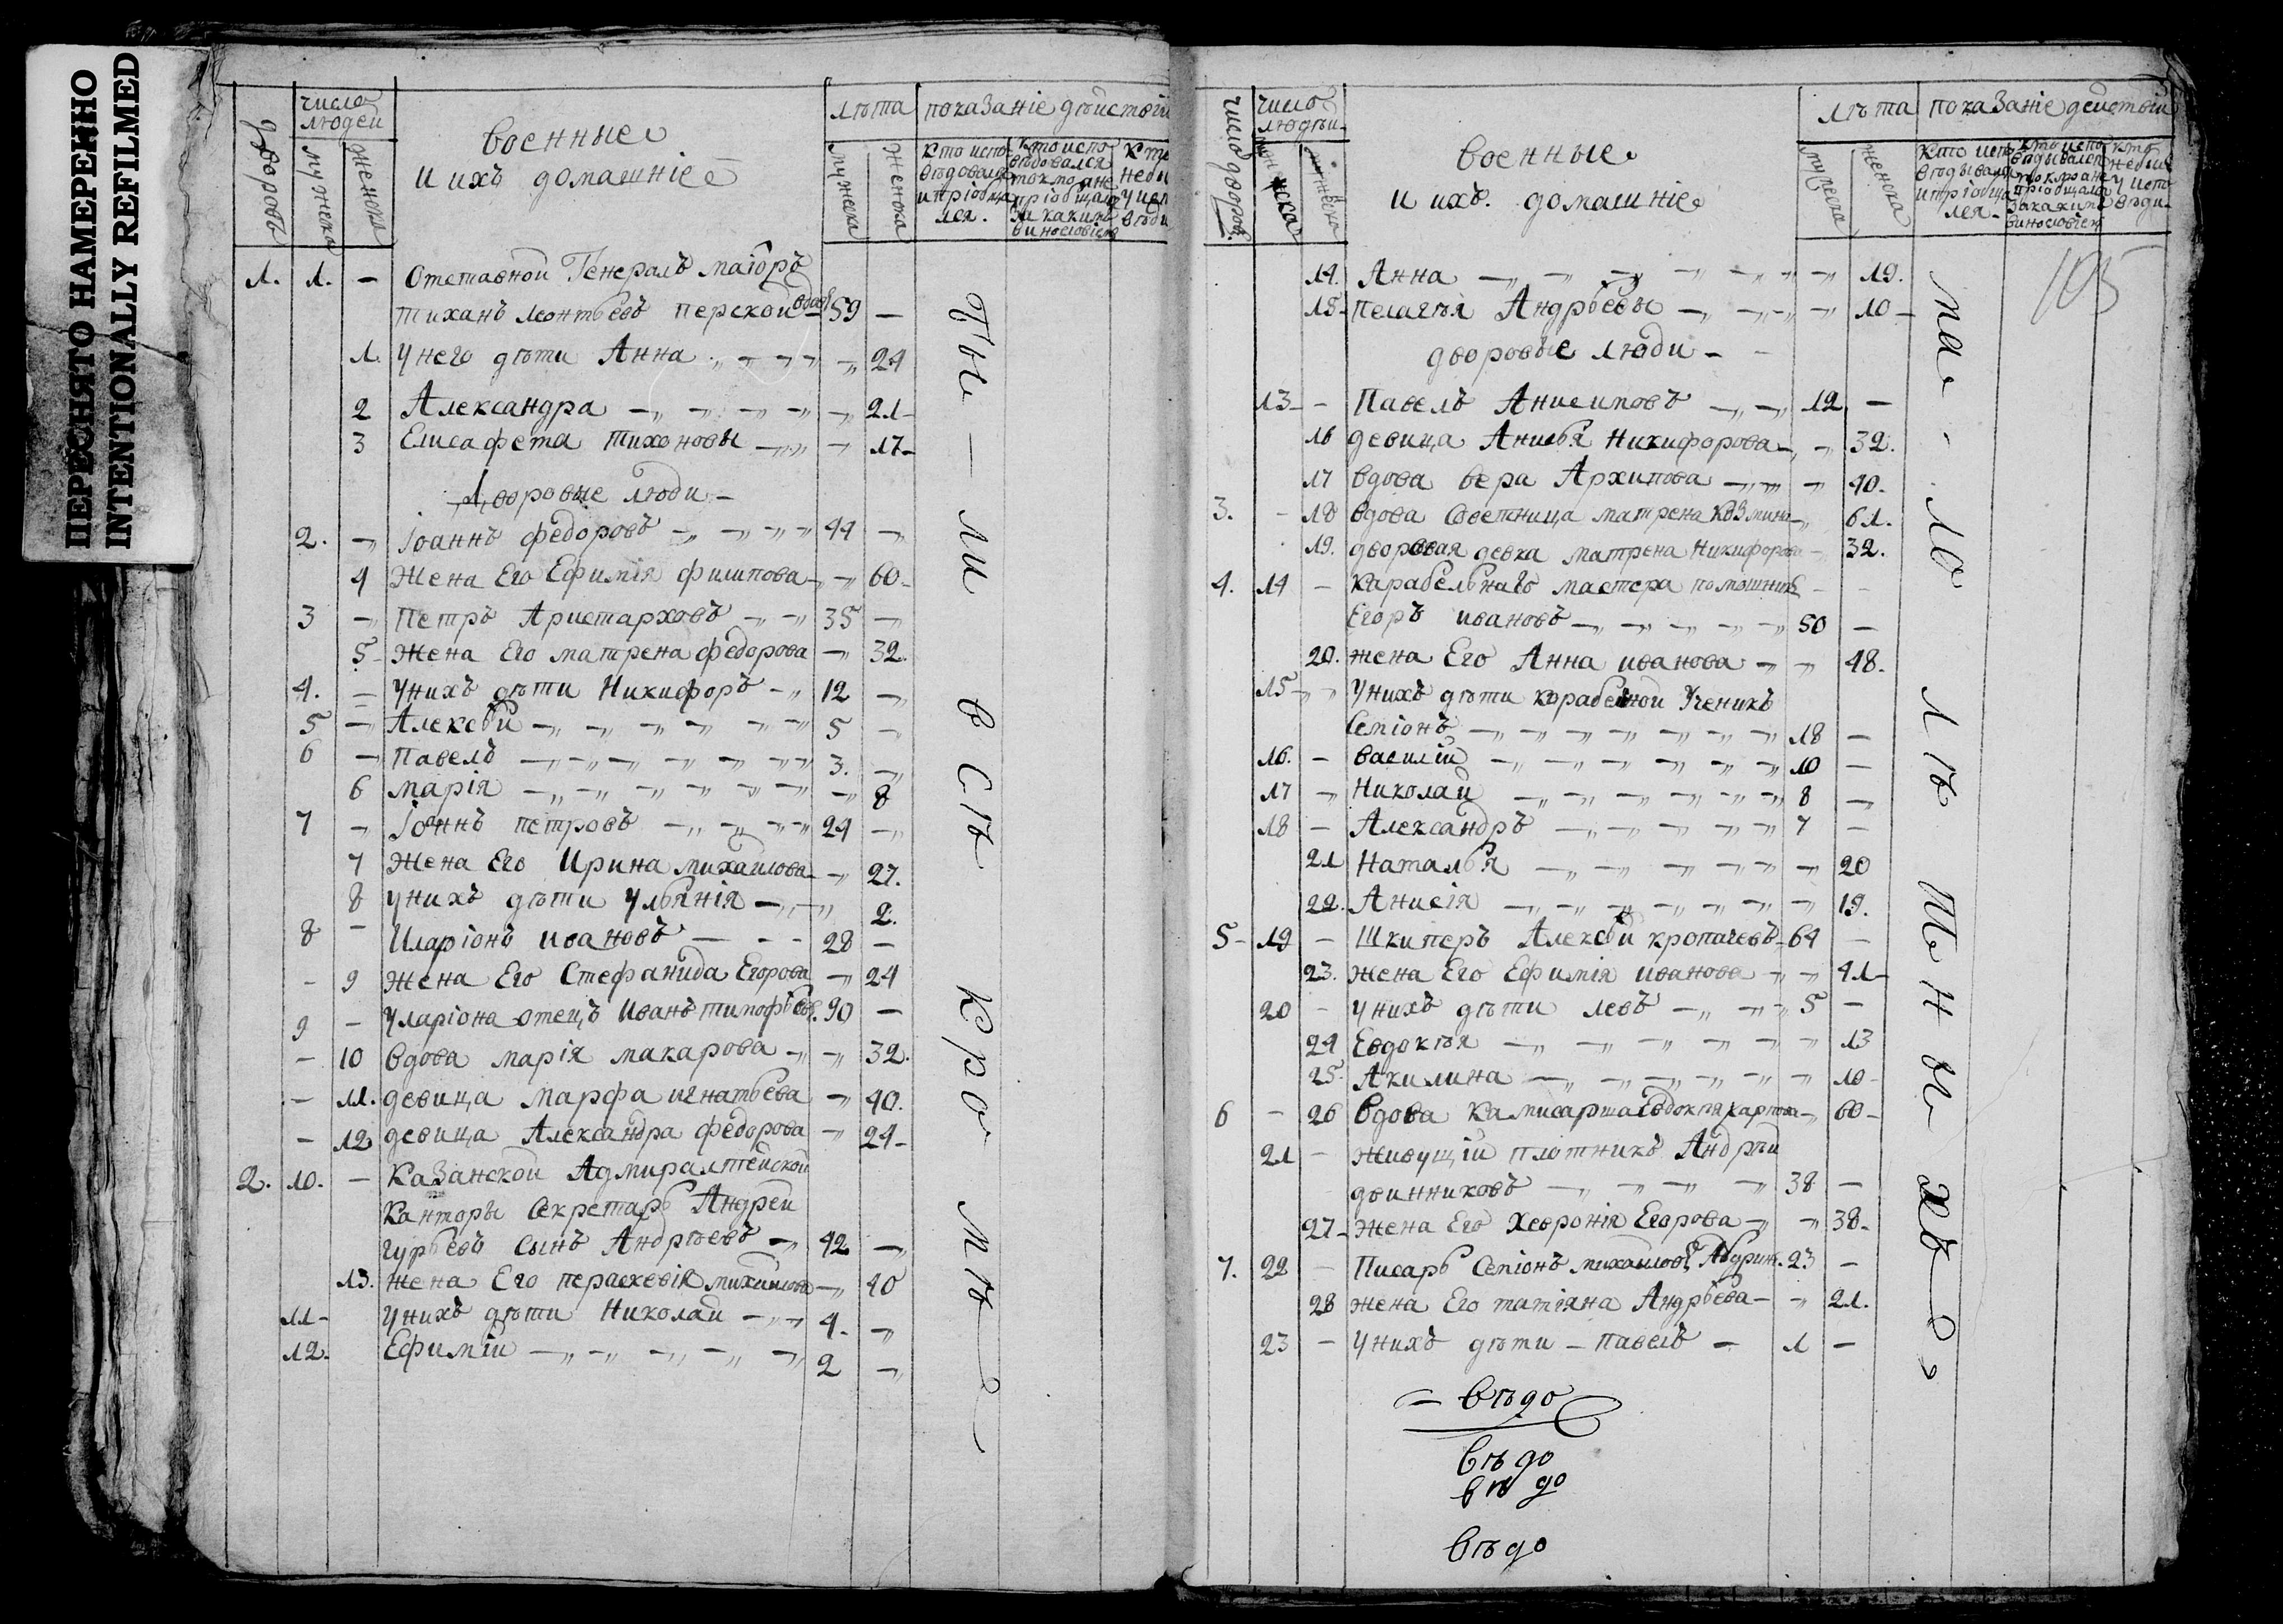 ПЕРЕСНЯТО НАМЕРЕННО
INTENTIONALLY REFILMED
дворовъ
число людей
мужеска
женска
военные
и ихъ домашніе
лѣта
мужеска
женска
показаніе дѣйствій
кто испо-
вѣдовался
и пріобща
лся.
кто испо
вѣдовался
токмо а не
пріобщался
за какимъ
винословіемъ
1. 1. — Отставной Генералъ маіоръ
Тиханъ Леонтьевъ перской вдовъ 59 —
1. У него дѣти Анна 24
2 Александра 21
3 Елисафета Тихоновы 17
Дворовые люди
2. Іоаннъ федоровъ 44
4 Жена Его Ефимія филипова 60
3 Петръ Аристарховъ 35
5 Жена Его матрена федорова 32.
4. У нихъ дѣти Никифоръ 12
5 Алексѣй 5
6 Павелъ 3.
6 марія 8
7 Іоаннъ петровъ 24
7 Жена Его Ирина михайлова 27.
8 У нихъ дѣти Ульянія 2.
8 Иларіонъ ивановъ 28 —
9 Жена Его Стефанида Егорова 24
9 — У ларіона отецъ Иванъ тимофѣевъ. 90 —
— 10 вдова марія макарова 32.
— 11. девица марфа игнатьева 40.
— 12 девица Александра федорова 24
2. 10. — Казанской Адмиралтейской
Канторы Секретарь Андрей
гурьевъ сынъ Андрѣевъ 42
13. жена Его параскевія михайлова 40
11 У нихъ дѣти Николай 4.
12. Ефимій 2
Ты — ли в сѣ кро мѣ
число дворовъ
число людѣй
мужеска
женска
военные
и ихъ. домашніе
лѣта
мужеска
женска
показаніе действій
14. Анна 19.
15 Пелагѣя Андрѣевы 10
дворовые люди
13 — Павелъ Анисимовъ 12 —
16 девица Анисья Никифорова 32.
17 вдова вера Архипова 40.
3. — 18 вдова Советница матрена Козмина 61.
19. дворовая девка матрена Никифорова 32.
4. 14 — карабельнаго мастера помошникъ
Егоръ ивановъ 50 —
20. жена Его Анна иванова 48.
15 У нихъ дѣти корабелной Ученикъ
Семіонъ 18 —
16. — василій 10 —
17 Николай 8
18 — Александръ 7 —
21 Наталья 20
22. Анисія 19.
5 19 — Шкиперъ Алексѣй кропачевъ 64 —
23. жена Его Ефимія иванова 41
20 — У нихъ дѣти левъ 5 —
24 Евдокѣя 13
25. Акилина 10
6 — 26 Вдова Камисарша Евдокѣя 60
21 — живущій плотникъ Андрѣй
двинниковъ 38 —
27 жена Его Хевронія Егорова 38
7. 22 — Писарь Семіонъ михайловъ 23 —
28 жена Его татіяна Андрѣева 21.
23 — У нихъ дѣти — павелъ — 1 —
ма - ло лѣ тн ы хъ
105
— вѣдо
вѣдо
вѣ до
вѣдо